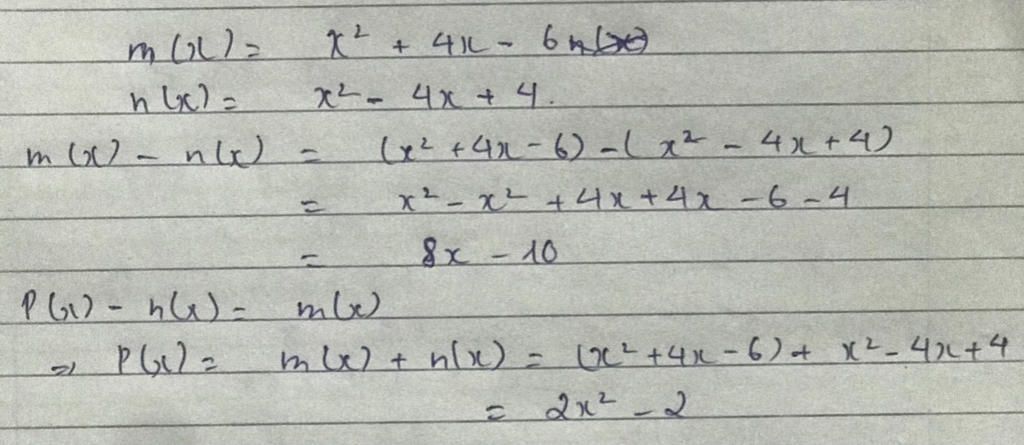 m(x) = x² + 4x - 6
n(x) = x² - 4x + 4.
m(x) - n(x) = (x² + 4x - 6) - (x² - 4x + 4)
= x² - x² + 4x + 4x - 6 - 4
= 8x - 10
P(x) - n(x) = m(x)
=> P(x) = m(x) + n(x) = (x² + 4x - 6) + x² - 4x + 4
= 2x² - 2